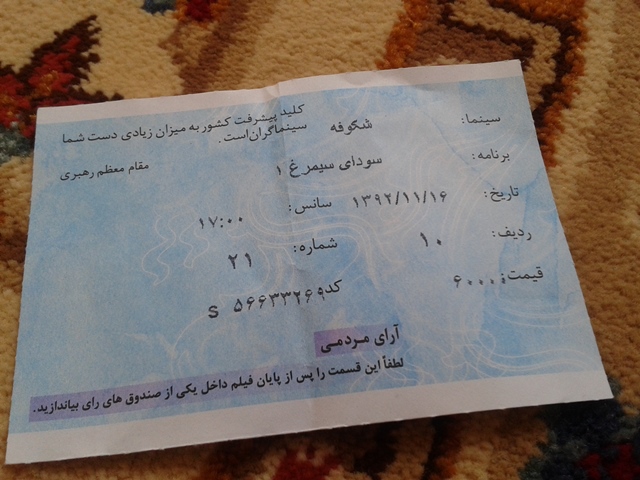 سینما: شکوفه
کلید پیشرفت کشور به میزان زیادی دست شما
سینماگران است.
مقام معظم رهبری
برنامه: سودای سیمرغ ۱
تاریخ: ۱۳۹۲/۱۱/۱۶ سانس: ۱۷:۰۰
ردیف: ۱۰ شماره: ۲۱
قیمت: ۶۰۰۰۰
کد: S ۵۶۶۳۳۲۶۹
آرای مردمی
لطفاً این قسمت را پس از پایان فیلم داخل یکی از صندوق های رای بیاندازید.